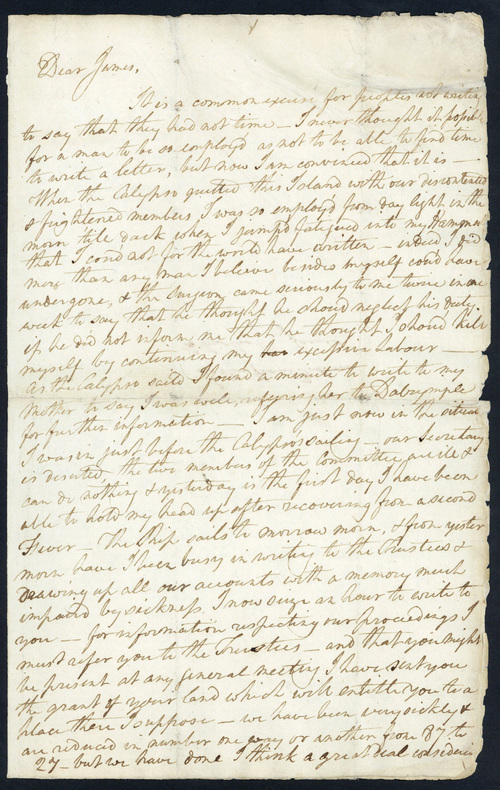 Dear James,
It is a common excuse for peoples not writing
to say that they had not time — I never thought it possible
for a man to be so employd as not to be able to find time
to write a letter, but now I am convinced that it is —
When the Calypso quitted this Island with our discontented
& frightened members I was so employd from day light in the
morn till dark when I jump'd fatigued into my Hammock
that I coud not for the world have written — indeed I did
more than any man I believe besides myself coud have
undergone, & the Surgeon came seriously to me twice in one
week to say that he thought he shoud neglect his duty
if he did not inform me that he thought I shoud kill
myself by continuing my excessive labour —
As the Calypso saild I found a minute to write to my
Mother to say I was well, refering her to Dalrymple
for further information — I am just now in the situation
I was in just before the Calypso's sailing — our Secretary
is deserted the two members of the Committee are ill &
can do nothing & yesterday is the first day I have been
able to hold my head up after recovering from a second
Fever — The Ship sails to morrow morn, & from yester
morn have I been busy in writing to the Trustees &
drawing up all our accounts with a memory much
impaired by sickness. I now seize an hour to write to
you — for information respecting our proceedings I
must refer you to the Trustees — and that you might
be present at any General meeting I have sent you
the grant of your land which will entitle you to a
place there I suppose — we have been very sickly &
are reduced in number one way or another from 87 to
27 — but we have done I think a great deal considering